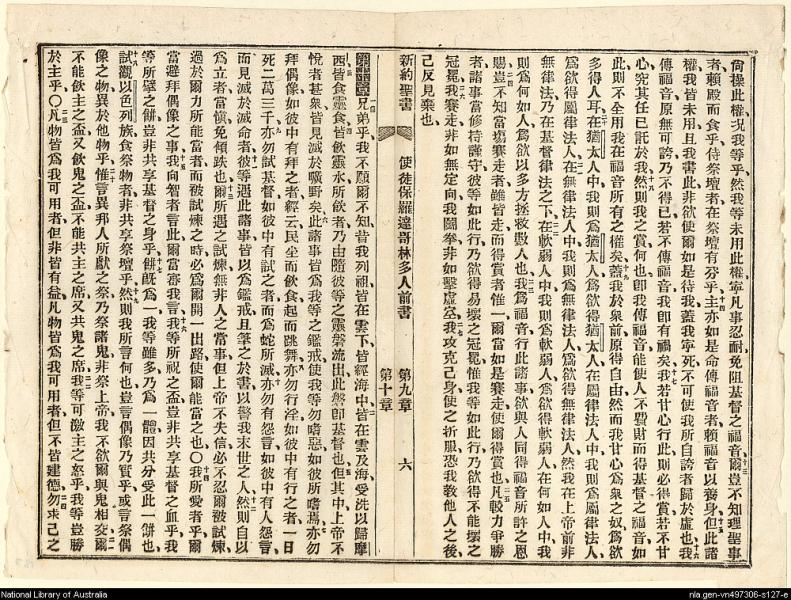 尙操此權况我等乎然我等未用此權寧凡事忍耐免阻基督之福音十三爾豈不知理聖事
者賴殿而食乎侍祭壇者在祭壇有分乎十四主亦如是命傳福音者賴福音以養身十五但此諸
權我皆未用且我書此非欲使爾如是待我蓋我寧死不可使我所自誇者歸於虛也十六我
傳福音原無可誇乃不得已若不傳福音我卽有禍矣十七我若甘心行此則必得賞若不甘
心究其任已託於我十八然則我之賞何也卽我傳福音能使人不費財而得基督之福音如
此則不全用我在福音所有之權矣十九蓋我於衆前原得自由然而我甘心爲衆之奴爲欲
多得人耳二十在猶太人中我則爲猶太人爲欲得猶太人在屬律法人中我則爲屬律法人
爲欲得屬律法人二一在無律法人中我則爲無律法人爲欲得無律法人然我在上帝前非
無律法乃在基督律法之下二二在軟弱人中我則爲軟弱人爲欲得軟弱人在何如人中我
則爲何如人爲欲以多方拯救數人也二三我爲福音行此諸事欲與人同得福音所許之恩
賜二四豈不知當塲賽走者雖皆走而得賞者惟一爾當如是賽走使爾得賞也二五凡較力爭勝
者諸事當修持謹守彼等如此行乃欲得易壞之冠冕惟我等如此行乃欲得不能壞之
冠冕二六我賽走非如無定向我鬭拳非如擊虛空二七我攻克己身使之折服恐我敎他人之後
己反見棄也
新約聖書 使徒保羅達哥林多人前書 第九章 第十章 六
第十章一兄弟乎我不願爾不知昔我列祖皆在雲下皆經海中二皆在雲及海受洗以歸摩
西三皆食靈食四皆飮靈水所飮者乃由隨彼等之靈磐流出此磐卽基督也五但其中上帝不
悅者甚衆皆見滅於曠野矣六此諸事皆爲我等之鑑戒使我等勿嗜惡如彼所嗜焉七亦勿
拜偶像如彼中有拜之者經云民坐而飮食起而跳舞八亦勿行淫如彼中有行之者一日
死二萬三千九亦勿試基督如彼中有試之者而爲蛇所滅十亦勿有怨言如彼中有人怨言
而見滅於滅命者十一彼等遇此諸事皆以爲鑑戒且筆之於書以警我末世之人十二然則自以
爲立者當愼免傾跌也十三爾所遇之試煉無非人之當有也但上帝不失信必不忍爾被試煉
過於爾力所能當者而被試煉之時必爲爾開一出路使爾能當之也〇十四我所愛者乎爾
當避拜偶像之事十五我向智者言此爾當審我言十六我等所祝之盃豈非共享基督之血乎我
等所擘之餅豈非共享基督之身乎十七餅旣爲一我等雖多乃爲一體因共分受此一餅也
十八試觀以色列族食祭物者非共享祭壇乎十九然則我所言何也豈言偶像乃實乎或言祭偶
像之物異於他物乎二十惟言異邦人所獻之祭乃祭諸鬼非祭上帝我不欲爾與鬼相交二一爾
不能飮主之盃又飮鬼之盃不能共主之席又共鬼之席二二我等可激主之怒乎我等豈勝
於主乎〇二三凡物皆爲我可用者但非皆有益凡物皆爲我可用者但不皆建德二四勿求己之
National Library of Australia
nla.gen-vn497306-s127-e